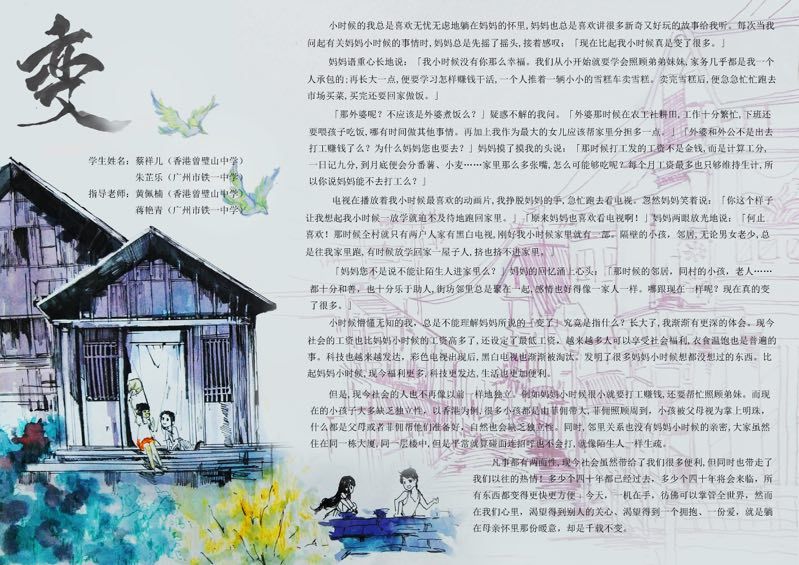 变
学生姓名：蔡祥儿（香港曾璧山中学）
朱芷乐（广州市铁一中学）
指导老师：黄佩楠（香港曾璧山中学）
蒋艳青（广州市铁一中学）
小时候的我总是喜欢无忧无虑地躺在妈妈的怀里,妈妈也总是喜欢讲很多新奇又好玩的故事给我听。每次当我
问起有关妈妈小时候的事情时,妈妈总是先摇了摇头,接着感叹：「现在比起我小时候真是变了很多。」
妈妈语重心长地说：「我小时候没有你那么幸福。我们从小开始就要学会照顾弟弟妹妹,家务几乎都是我一个
人承包的;再长大一点,便要学习怎样赚钱干活,一个人推着一辆小小的雪糕车卖雪糕。卖完雪糕后,便急急忙忙跑去
市场买菜,买完还要回家做饭。」
「那外婆呢？不应该是外婆煮饭么？」疑惑不解的我问。「外婆那时候在农工社耕田,工作十分繁忙,下班还
要喂孩子吃饭,哪有时间做其他事情。再加上我作为最大的女儿应该帮家里分担多一点。」「外婆和外公不是出去
打工赚钱了么？为什么妈妈您也要去？」妈妈摸了摸我的头说：「那时候打工发的工资不是金钱,而是计算工分,
一日记九分,到月底便会分番薯、小麦……家里那么多张嘴,怎么可能够吃呢？每个月工资最多也只够维持生计,所
以你说妈妈能不去打工么？」
电视在播放着我小时候最喜欢的动画片,我挣脱妈妈的手,急忙跑去看电视。忽然妈妈笑着说：「你这个样子
让我想起我小时候一放学就迫不及待地跑回家里。」「原来妈妈也喜欢看电视啊！」妈妈两眼放光地说：「何止
喜欢！那时候全村就只有两户人家有黑白电视,刚好我小时候家里就有一部。隔壁的小孩，邻居,无论男女老少,总
是往我家里跑,有时候放学回家一屋子人,挤也挤不进家里。」
「妈妈您不是说不能让陌生人进家里么？」妈妈的回忆涌上心头:「那时候的邻居，同村的小孩，老人……
都十分和善，也十分乐于助人,街坊邻里总是聚在一起,感情也好得像一家人一样。哪跟现在一样呢？现在真的变
了很多。」
小时候懵懂无知的我，总是不能理解妈妈所说的「变了」究竟是指什么？长大了,我渐渐有更深的体会。现今
社会的工资也比妈妈小时候的工资高多了,还设定了最低工资，越来越多人可以享受社会福利,衣食温饱也是普遍的
事。科技也越来越发达，彩色电视出现后,黑白电视也渐渐被淘汰。发明了很多妈妈小时候想都没想过的东西。比
起妈妈小时候,现今福利更多,科技更发达,生活也更加便利。
但是,现今社会的人也不再像以前一样地独立。例如妈妈小时候很小就要打工赚钱,还要帮忙照顾弟妹。而现
在的小孩子大多缺乏独立性，以香港为例,很多小孩都是由菲佣带大,菲佣照顾周到，小孩被父母视为掌上明珠，
什么都是父母或者菲佣帮他们准备好、自然也会缺乏独立性。同时,邻里关系也没有妈妈小时候的亲密,大家虽然
住在同一栋大厦,同一层楼中,但是平常就算碰面连招呼也不会打,就像陌生人一样生疏。
凡事都有两面性,现今社会虽然带给了我们很多便利,但同时也带走了
我们以往的热情！多少个四十年都已经过去，多少个四十年将会来临，所
有东西都变得更快更方便。今天，一机在手，彷彿可以掌管全世界，然而
在我们心里，渴望得到别人的关心、渴望得到一个拥抱、一份爱，就是躺
在母亲怀里那份暖意，却是千载不变。